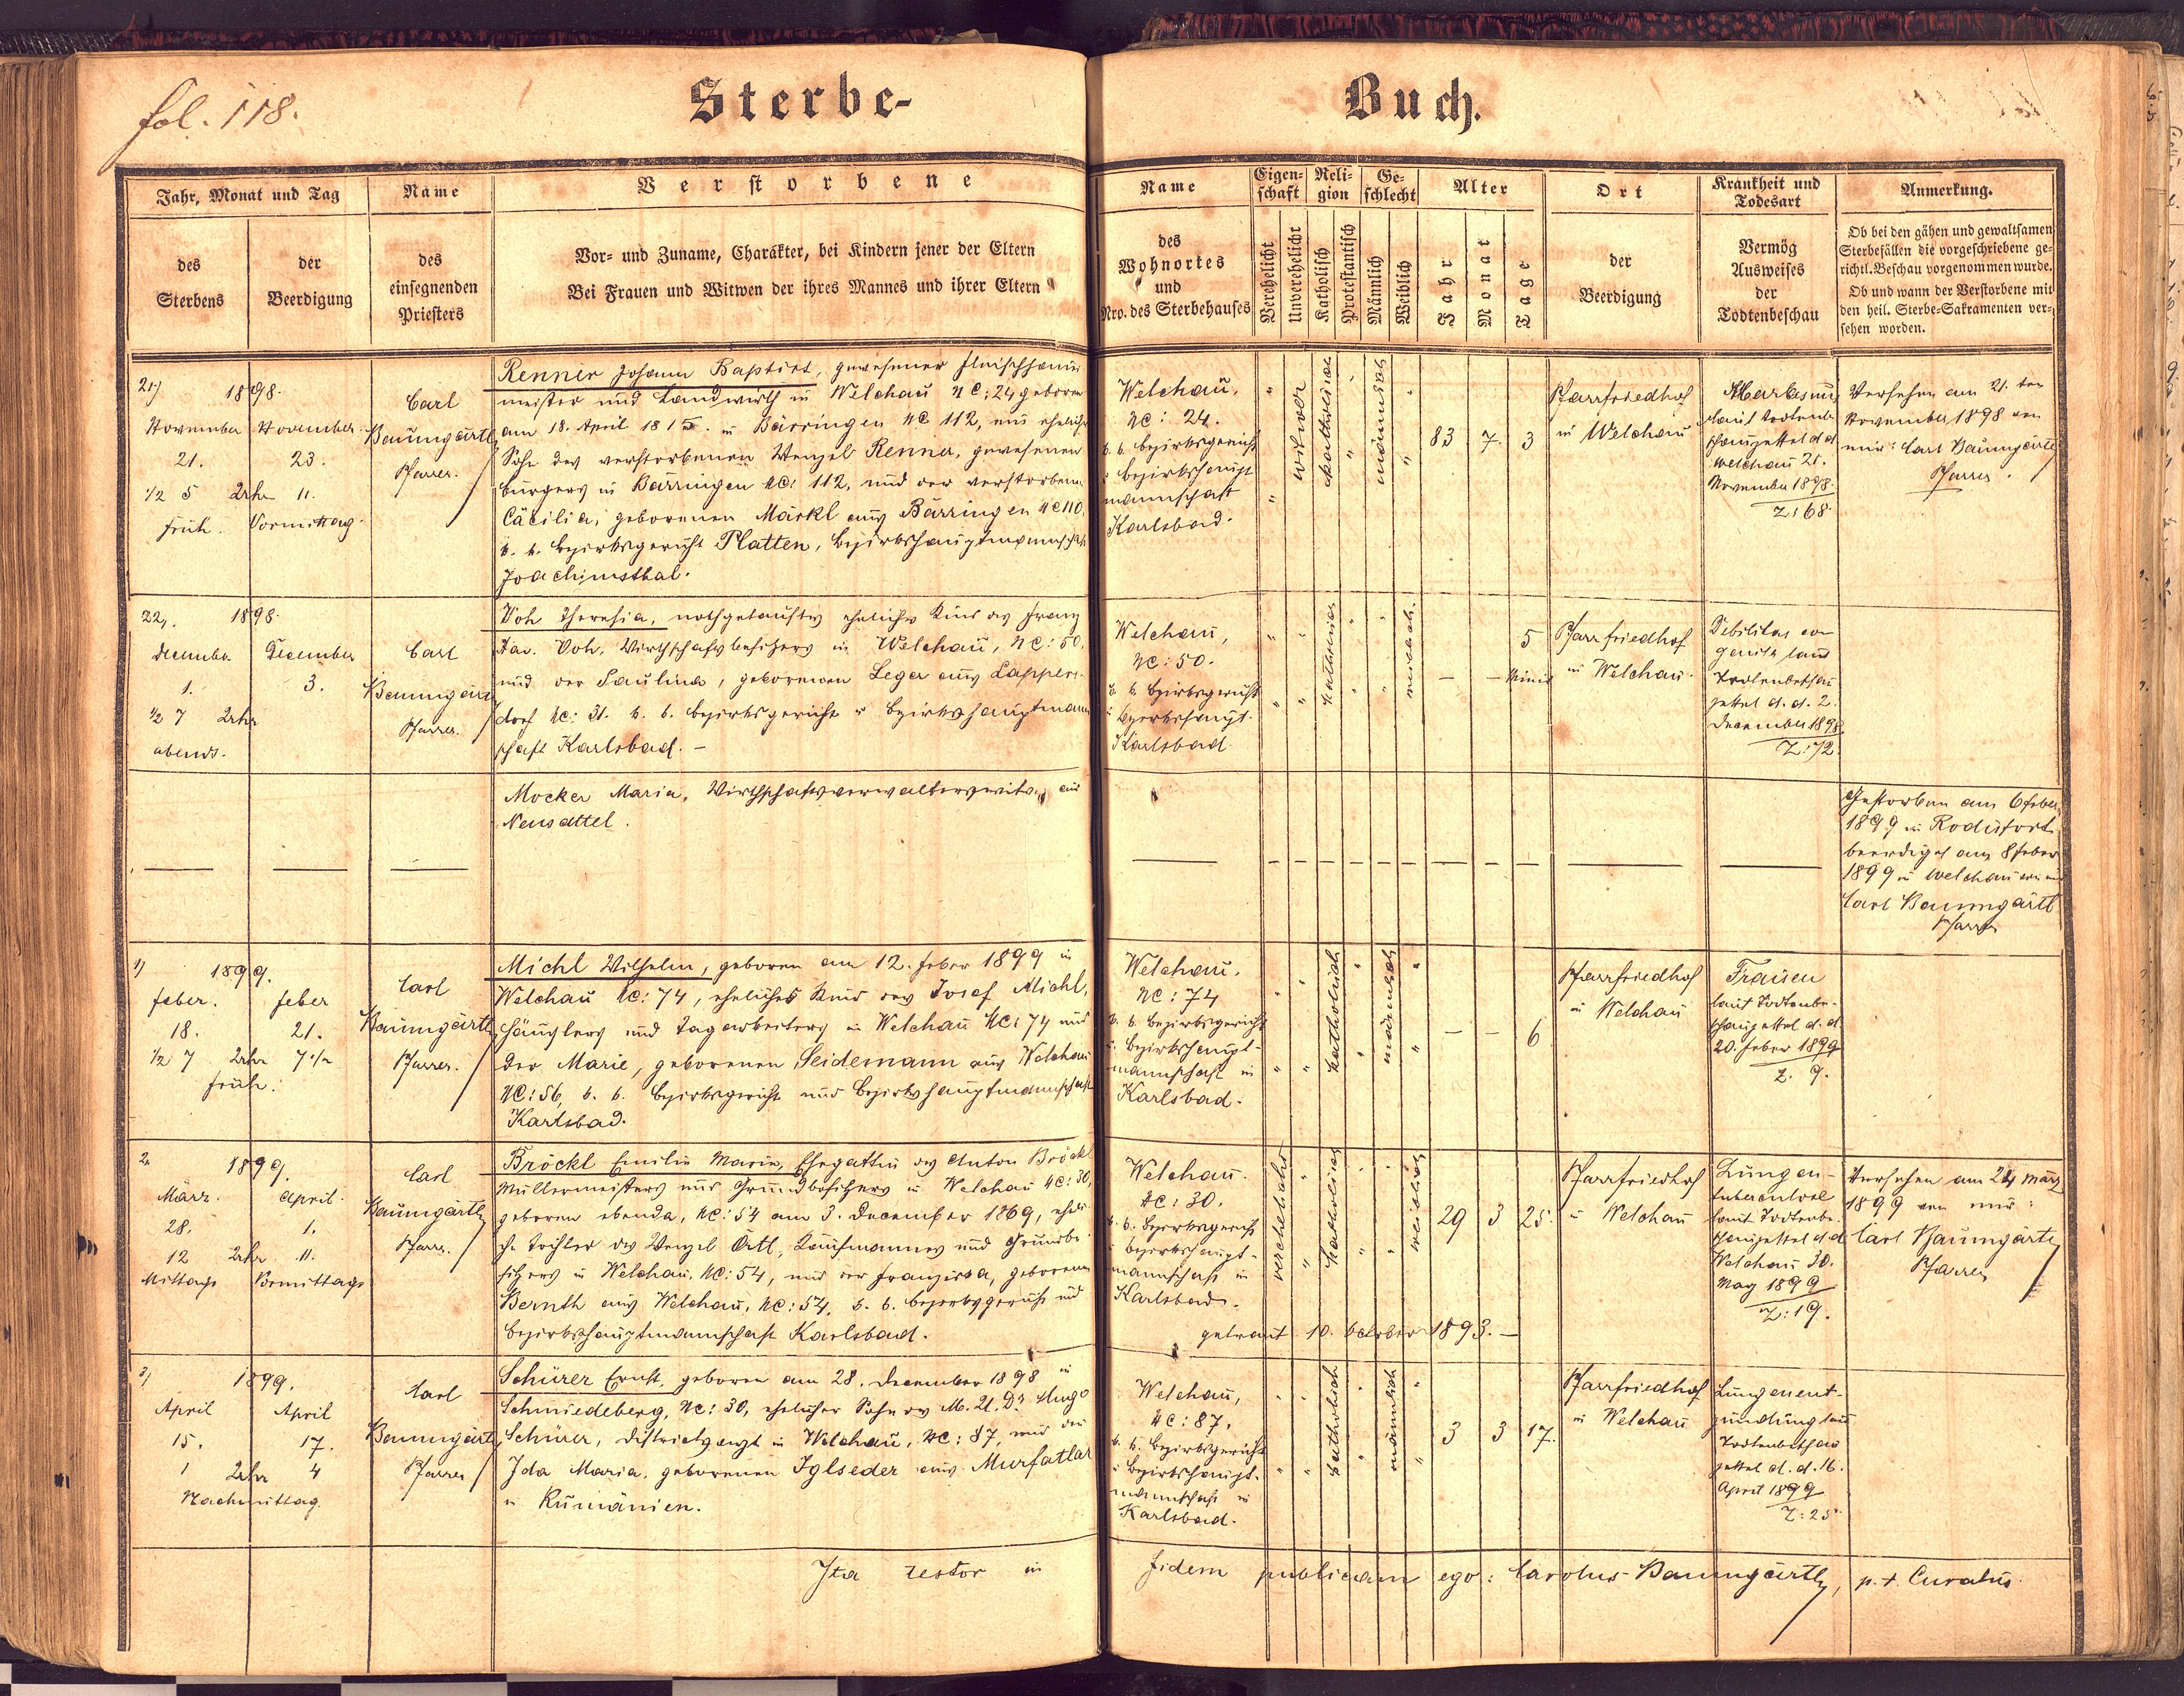 fol. 118.
Sterbe-
Buch.
Jahr, Monat und Tag
des Sterbens
der Beerdigung
Name
des einsegnenden Priesters
Verstorbene
Vor- und Zuname, Charakter, bei Kindern jener der Eltern
Bei Frauen und Witwen der ihres Mannes und ihrer Eltern
Name
des
Wohnortes
und
Nro. des Sterbehauses
Eigenschaft
Verehelicht
Unverehelicht
Religion
Katholisch
Protestantisch
Geschlecht
Männlich
Weiblich
Alter
Jahr
Monat
Tage
Ort
der
Beerdigung
Krankheit und
Todesart
Vermög
Ausweises
der
Todtenbeschau
Anmerkung.
Ob bei den gähen und gewaltsamen
Sterbefällen die vorgeschriebene ge-
richtl. Beschau vorgenommen wurde.
Ob und wann der Verstorbene mit
den heil. Sterbe-Sakramenten ver-
sehen worden.
21) 1898.
November November
21. 23.
1/2 5 Uhr 11.
früh. Vormittag.
Carl
Baumgärtl
Pfarrer.
Renner Johann Baptist, gewesener Fleischhauer
meister und Landwirth in Welchau NC: 24 geboren
am 18. April 1815. in Bärringen NC 112, ein ehelicher
Sohn des verstorbenen Wenzel Renner, gewesenen
Bürgers in Bärringen NC: 112, und der verstorbenen
Cäcilia, geborenen Märkl aus Bärringen NC 110.
k. k. Bezirksgericht Platten, Bezirkshauptmannschaft
Joachimsthal.
Welchau,
NC: 24.
k. k. Bezirksgericht
u Bezirkshaupt
mannschaft
Karlsbad.
Witwer
katholisch
männlich
83 7. 3
Pfarrfriedhof
in Welchau
Marasmus
laut Todtenbe
schauzettel d d
Welchau 21.
November 1898.
Z: 68
Versehen am 21. ten
November 1898 von
mir: Carl Baumgärtl
Pfarrer.
22,. 1898.
December December
1. 3.
1/2 7 Uhr
abends.
Carl
Baumgärtl
Pfarrer.
Voh Theresia, nothgetauftes eheliches Kind des Franz
Xav. Voh, Wirthschaftsbesitzers in Welchau, NC: 50.
und der Paulina, geborenen Leger aus Lappers-
dorf NC: 31. k. k. Bezirksgericht u Bezirkshauptmann
schaft Karlsbad. —
Welchau,
NC: 50.
k. k. Bezirksgericht
u Bezirkshaupt.
Karlsbad
katholisch
weiblich.
— — 5 Minut
Pfarrfriedhof
in Welchau.
Debilitas con
genita laut
Todtenbeschau
zettel d. d. 2.
December 1898
Z: 72.
Mocker Maria, Wirthschaftsverwalterswitwe aus
Neusattel.
Gestorben am 6 Feber
1899 in Rodisfort
beerdigt am 8 Feber
1899 in Welchau von mir
Carl Baumgärtl
Pfarrer
1) 1899.
Feber. Feber
18. 21.
1/2 7 Uhr 7 1/2
früh.
Carl
Baumgärtl
Pfarrer.
Michl Wilhelm, geboren am 12. Feber 1899 in
Welchau NC: 74, eheliches Kind des Josef Michl,
Häuslers und Tagarbeiters in Welchau NC: 74 und
der Marie, geborenen Seidemann aus Welchau
NC: 56, k. k. Bezirksgericht und Bezirkshauptmannschaft
Karlsbad.
Welchau,
NC: 74
k. k. Bezirksgericht
u. Bezirkshaupt-
mannschaft in
Karlsbad.
katholisch
männlich
— — 6
Pfarrfriedhof
in Welchau
Fraisen
laut Todtenbe-
schauzettel d. d.
20. Feber 1899
Z. 9.
2. 1899.
März. April.
28. 1.
12 Uhr 11.
Mittags Vormittags
Carl
Baumgärtl
Pfarrer.
Bröckl Emilie Marie, Ehegattin des Anton Bröckl
Müllermeisters und Grundbesitzers in Welchau NC: 30,
geboren ebenda, NC: 54 am 3. December 1869, eheli-
che Tochter des Wenzel Ortl, Kaufmannes und Grundbe-
sitzers in Welchau, NC: 54, und der Franziska, geborenen
Bernth aus Welchau, NC: 54, k. k. Bezirksgericht und
Bezirkshauptmannschaft Karlsbad.
Welchau.
NC: 30.
k. k. Bezirksgericht
u Bezirkshaupt-
mannschaft in
Karlsbad.
verehelicht
katholisch
weiblich
29 3 25.
getraut 10. October 1893. —
Pfarrfriedhof
in Welchau
Lungen-
tuberculose
laut Todtenbe.
schauzettel d d
Welchau 30.
1899
Z: 19.
Versehen am 24 März
1899 von mir:
Carl Baumgärtl
Pfarrer
3) 1899.
April April
15. 17.
1 Uhr 4
Nachmittag.
Carl
Baumgärtl
Pfarrer
Schürer Ernst, geboren am 28. December 1898 in
Schmiedeberg, NC: 30, ehelicher Sohn des M. U. Dr Hugo
Schürer, Districtsarzt in Welchau, NC: 87, und der
Ida Maria, geborenen Iglseder aus Murfatlar
in Rumänien.
Welchau,
NC: 87.
k. k. Bezirksgericht
u Bezirkshaupt.
mannschaft in
Karlsbad.
katholisch
männlich
3 3 17.
Pfarrfriedhof
in Welchau
Lungenent-
zündung laut
Todtenbeschau
zettel d. d. 16.
April 1899
Z: 25.
Ita testor in fidem publicam ego: Carolus Baumgärtl, p. t. Curatus.